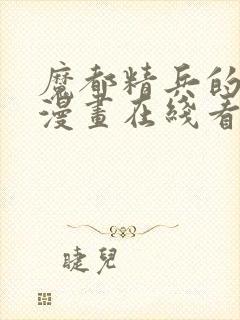 魔都精兵的
漫畫在綫看
睫兒